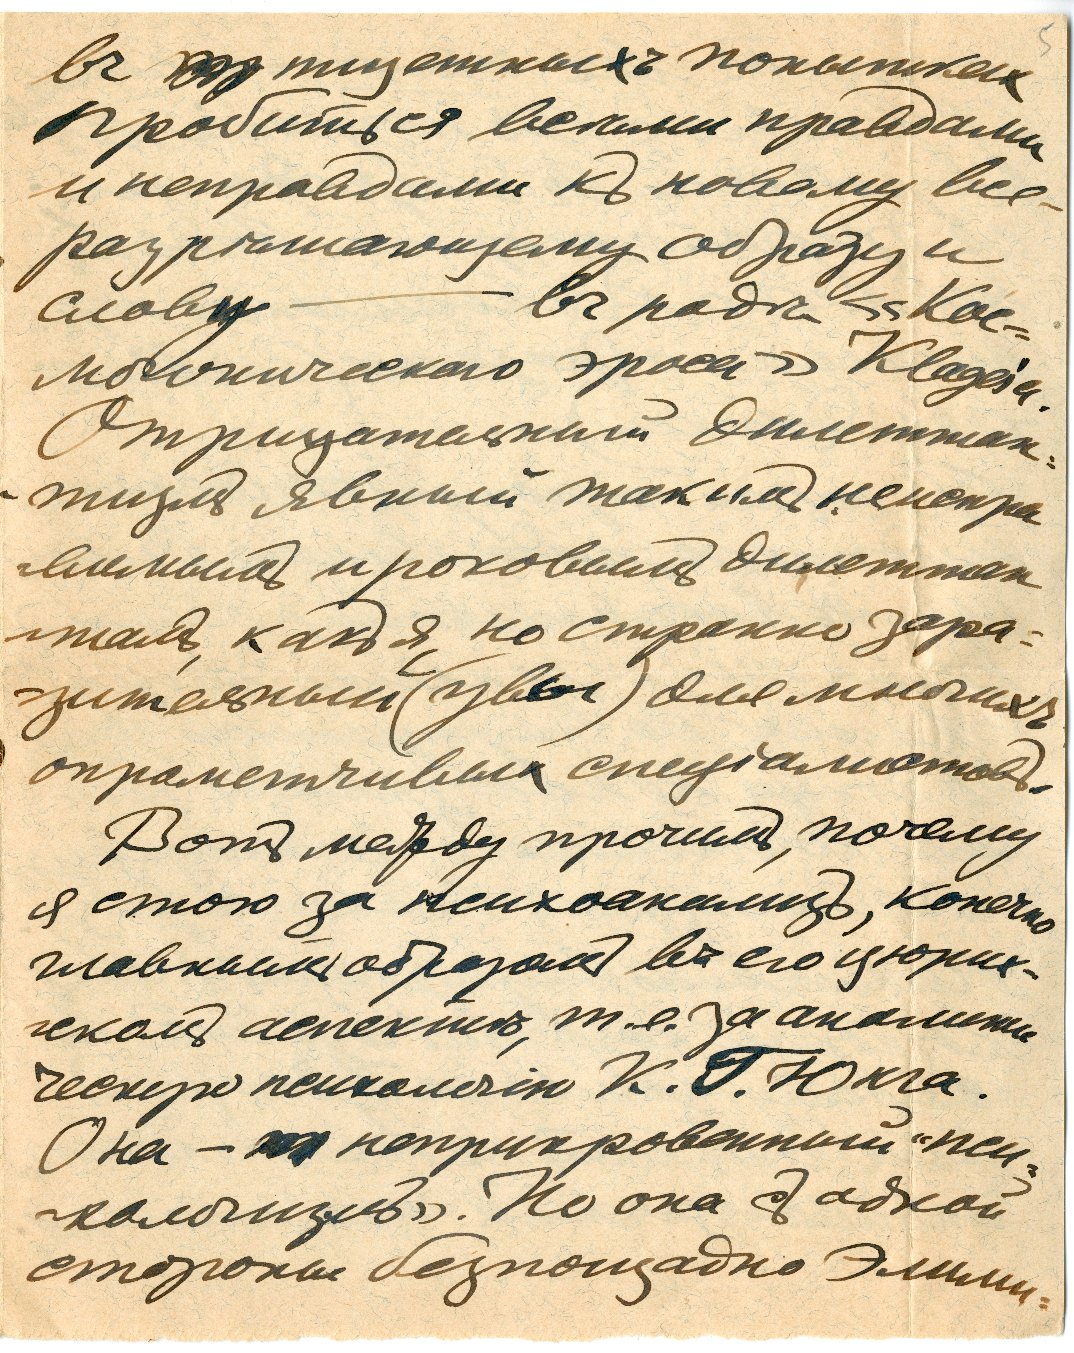 5
въ тщетныхъ попытках
пробиться всеми правдами
и неправдами къ новому все-
разрѣшающему образу и
слову — въ родѣ «Кос-
могоническаго эроса» Klages'a.
Отрицательный дилеттан-
тизмъ явный такимъ неиспра
вимымъ и роковымъ дилеттан
тамъ, какъ я, но странно зара-
зительный (увы) для многихъ
опрометчивых спеціалистовъ.
Вотъ между прочимъ, почему
я стою за психоанализъ, конечно
главнымъ образомъ въ его цюрих-
скомъ аспектѣ, т.е. за аналити
ческую психологію К. Г. Юнга.
Она — неприкровенный "пси-
хологизмъ». Но она съ одной
стороны безпощадно элими-